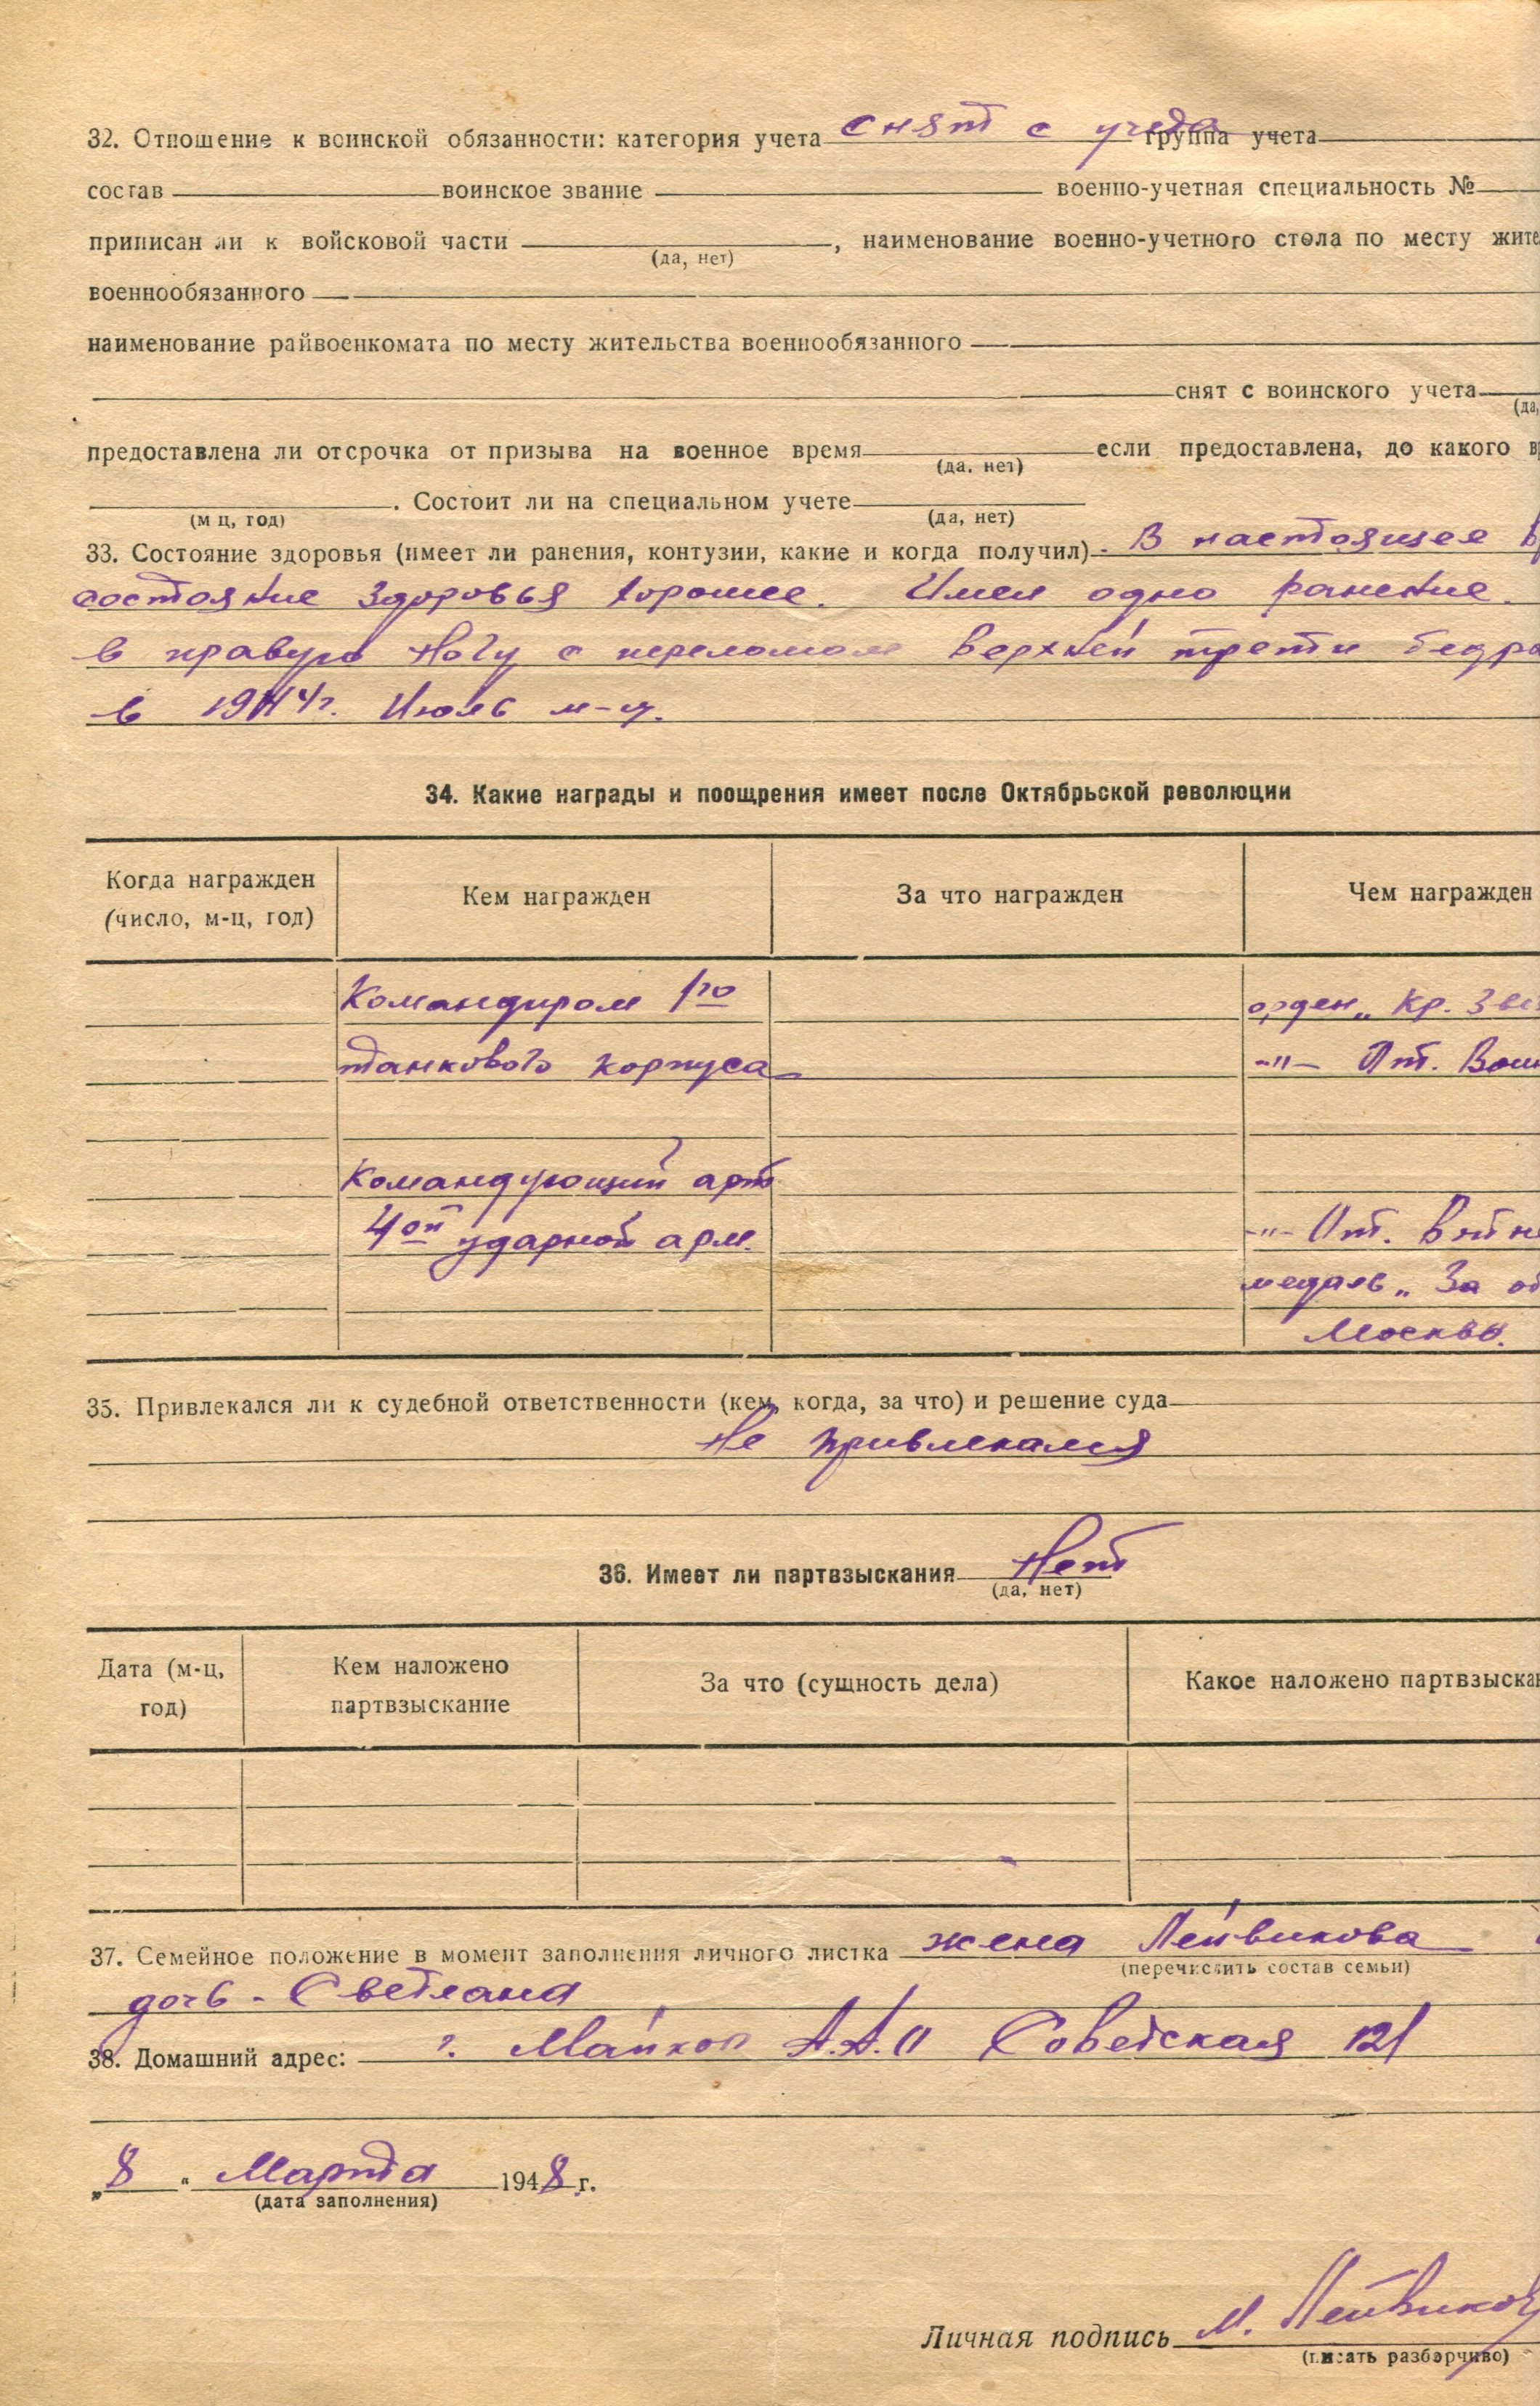 32. Отношение к воинской обязанности: категория учета снят с учета группа учета
состав воинское звание военно-учетная специальность №
приписан ли к войсковой части , наименование военно-учетного стола по месту жите
(да, нет)
военнообязанного
наименование райвоенкомата по месту жительства военнообязанного
снят с воинского учета
(да,
предоставлена ли отсрочка от призыва на военное время если предоставлена, до какого в
(да, нет)
. Состоит ли на специальном учете
(м ц, год) (да, нет)
33. Состояние здоровья (имеет ли ранения, контузии, какие и когда получил). В настоящее в
состояние здоровья хорошее. Имел одно ранение.
в правую ногу с переломом верхней трети бедра
в 1944г. Июль м-ц.
34. Какие награды и поощрения имеет после Октябрьской революции
Когда награжден (число, м-ц, год) Кем награжден За что награжден Чем награжден
Командиром 1го орден „Кр. Звез
танкового корпуса -"- От. Вой
Командующий арт
4ой ударной арм. -"- От. Войн
медаль „За об
Москвы.
35. Привлекался ли к судебной ответственности (кем, когда, за что) и решение суда
Не привлекался
36. Имеет ли партвзыскания Нет
(да, нет)
Дата (м-ц, год) Кем наложено партвзыскание За что (сущность дела) Какое наложено партвзыскан
37. Семейное положение в момент заполнения личного листка жена Лейвикова
(перечислить состав семьи)
дочь - Светлана
38. Домашний адрес: г. Майкоп А.А.О Советская 121
„8 " Марта 1948 г.
(дата заполнения)
Личная подпись М. Лейвиков
(писать разборчиво)